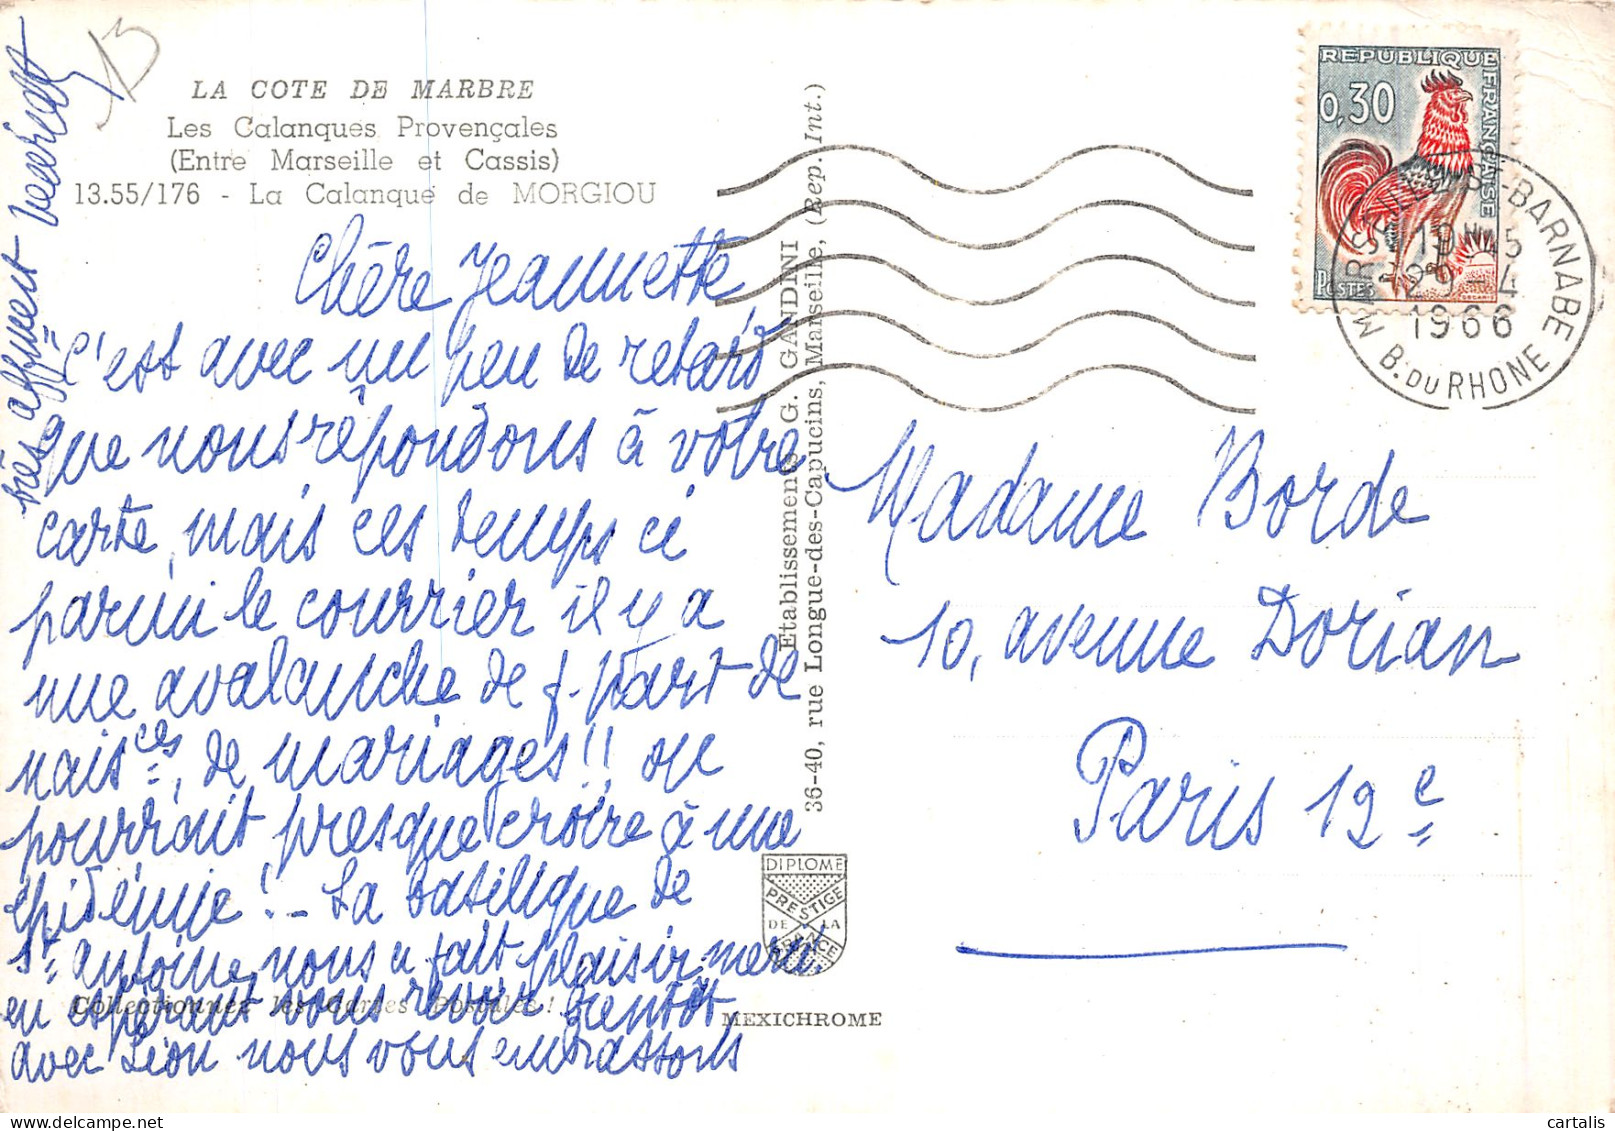 13
LA COTE DE MARBRE
Les Calanques Provençales
(Entre Marseille et Cassis)
13.55/176 - La Calanque de MORGIOU
Chère Jeannette
c'est avec un peu de retard
que nous répondons à votre
carte, mais ces temps ci
parmi le courrier il y a
une avalanche de f. part de
naisces, de mariages!! on
pourrait presque croire à une
épidémie! - La basilique de
St Antoine nous a fait plaisir, merci
en espérant vous revoir bientôt
avec Léon nous vous embrassons
très affmeent
Collectionnez les Cartes Postales!
Etablissements G. GANDINI
36-40, rue Longue-des-Capucins, Marseille, (Rep. Int.)
DIPLOME
PRESTIGE
DE LA
FRANCE
MEXICHROME
REPUBLIQUE FRANÇAISE
0,30
POSTES
DECARIS
MARSEILLE ST-BARNABE
29 - 4
1966
B. DU RHONE
Madame Borde
10, avenue Dorian
Paris 12e
cartalis